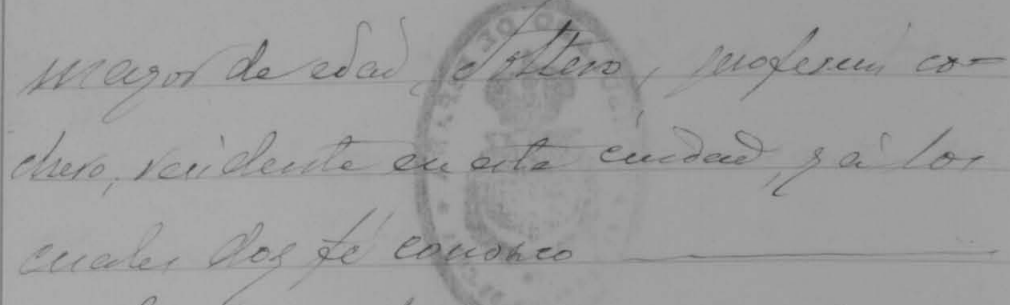 mayor de edad, soltero, profesión co-
chero, residente en esta ciudad, y á los
cuales doy fé conozco